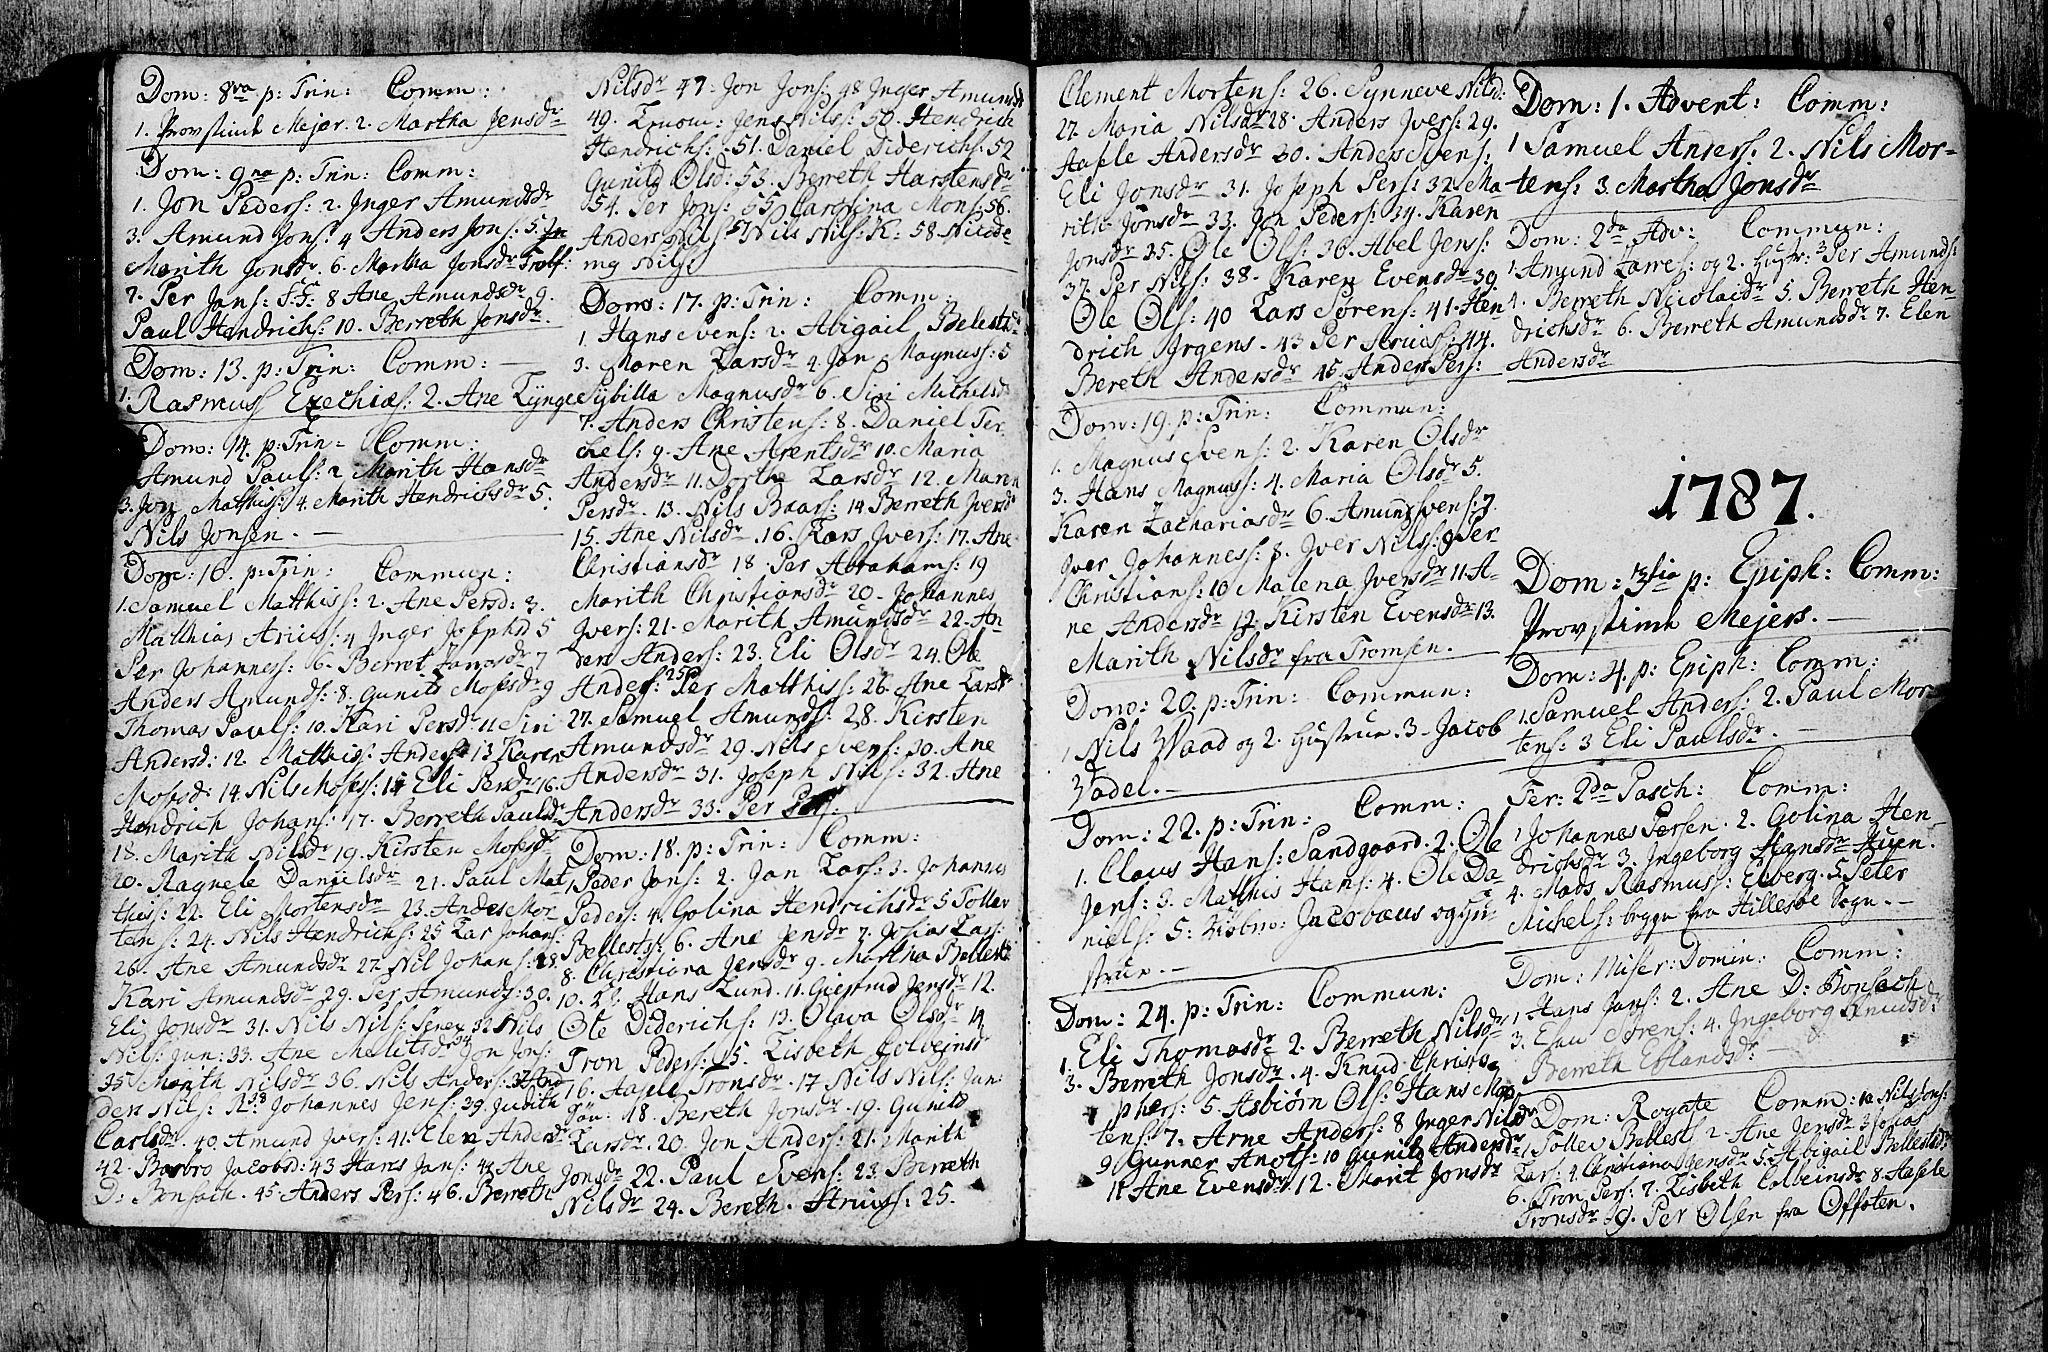 Dom: 8va p: Trin: Comm:
1. Provstinde Mejer. 2. Martha Jensdr
Dom: 9na p: Trin: Comm:
1. Jon Peders: 2. Inger Amundsdr
3. Amund Jons: 4 Anders Jons: 5.
Marith Jonsdr. 6. Martha Jonsdr
7. Per Jans: 8 Ane Amundsdr 9.
Paul Hendrichs: 10. Berreth Jonsdr.
Dom: 13. p: Trin: Comm:
1. Rasmuss Ezechias: 2. Ane Lynge
Dom: 14. p: Trin: Comm:
Amund Pauls: 2 Marith Hansdr
3. Jon Mathis: 4. Marith Hendrichsdr 5.
Nils Jonsen.
Dom: 16. p: Trin: Commun:
1. Samuel Matthiss: 2. Ane Persd: 3.
Matthias Arius: 4 Inger Josephd 5
Per Johanness: 6. Berret Larsdr 7
Anders Amunds: 8. Gunild Mosesdr 9
Thomas Pauls: 10. Kari Persdr 11 Siri
Andersd: 12. Mathiss: Anders: 13 Karen
Mosesd: 14. Nils Moses: 15 Eli Persdr 16.
Hendrich Johans: 17. Berreth Paulsdr
18. Marith Nilsdr 19. Kirsten Mosesdr
20. Ragnele Danielsdr 21. Paul Mat
thiss: 22. Eli Mortensdr 23. Andes Mor
tens: 24. Nils Hendrichs: 25 Lar Johans:
26. Ane Amundsdr 27. Nil Johans: 28.
Kari Amundsdr 29. Per Amunds: 30.
Eli Jonsdr 31. Nils Nils: Senex 32 Nils
Nils: Jun: 33. Ane 34 Jon Jons:
35 Marith Nilsdr 36. Nils Anders: 37 An
ders Nils: 38 Johannes Jens: 39. Judith
Carlsdr. 40. Amund Ivers: 41. Elen Andersdr
42. Barbro Jacobsd: 43 Hans Jans: 44 Ane
D: Bonsach. 45. Anders Pers: 46. Berreth
Nilsdr 47. Jon Jons: 48 Inger Amundsdr
49. Jens Nils: 50. Hendrich
Hendrichs: 51. Daniel Diderichs: 52
Gunild Olsd: 53. Berreth Harstensdr
54. Per Jons: 55 Carolina Mons: 56.
Anders Nils: 57 Nils Nils: K: 58
Nils:
Dom: 17. p: Trin: Comm:
1. Hans Svens: 2. Abigail Belestdr
3. Maren Larsdr 4. Jan Magnuss: 5
Sybilla Magnusdr 6. Siri Michelsdr
7. Anders Christens: 8. Daniel Ter-
chels: 9. Ane Arentsdr 10. Maria
Andersdr 11. Dorthe Larsdr 12. Maren
Persdr. 13. Nils Baars: 14 Berreth Iversdr
15. Ane Nilsdr. 16. Lars Ivers: 17. Ane
Christiansdr 18. Per Abrahams: 19
Marith Christiansdr 20. Johannes
Ivers: 21. Marith Amundsdr 22. An-
ders Anders: 23. Eli Olsdr 24. Ole
Anders: 25 Per Matthis: 26. Ane Larsdr
27. Samuel Amunds: 28. Kirsten
Amundsdr 29. Nils Svens: 30. Ane
Andersdr 31. Joseph Nils: 32. Ane
Andersdr 33. Per Pers:
Dom: 18. p: Trin: Comm:
1. Peder Jons: 2. Jan Lars: 3. Johannes
Peders: 4. Golina Hendrichsdr 5 Tollev
Bellests: 6. Ane Jensdr 7. Josias Lars:
8. Christiana Jensdr 9. Martha Bellestdr
10. Hans Lund. 11. Giertrud Jensdr 12.
Ole Diderichs: 13. Olava Olsdr 14
Tron Peders: 15. Lisbeth Colbeinsdr
16. Aasele Tronsdr. 17 Nils Nils: Jun:
18. Bereth Jonsdr. 19. Gunild
Larsdr. 20. Jon Anders: 21. Marith
Jonsdr 22. Paul Svens: 23. Berreth
Nilsdr 24. Bereth. Ariuss: 25.
Clement Mortens: 26. Synneve Nilsd:
27. Maria Nilsdr 28. Anders Ivers: 29.
Aasele Andersdr 30. Anders Svens:
Eli Jonsdr 31. Joseph Pers: 32. Ma
rith Jonsdr 33. Jon Peders: 34. Karen
Jonsdr 35. Ole Ols: 36. Abel Jens:
37. Per Nils: 38. Karen Evensdr 39
Ole Ols: 40 Lars Sørens: 41. Hen
drich Jrgens. 43 Per Ariuss: 44.
Bereth Andersdr 45. Anders Pers:
Dom: 19. p: Trin: Commun:
1. Magnus Svens: 2. Karen Olsdr
3. Hans Magnuss: 4. Maria Olsdr 5.
Karen Zachariasdr 6. Amund Svens: 7.
Iver Johanness: 8. Iver Nilss: 9 Per
Christians: 10 Malena Iversdr 11. A-
ne Andersdr 12. Kirsten Evensdr 13.
Marith Nilsdr fra Tromsen.
Dom: 20. p: Trin: Commun:
1 Nils Waad og 2. Hustrue. 3. Jacob
Wadel.
Dom: 22. p: Trin: Comm:
1. Claus Hans: Sandgaard. 2. Ole
Jens: 3. Matthis Hans: 4. Ole Da
niels: 5: Jacobæus og Hu-
strue.
Dom: 24. p: Trin: Commun:
1. Eli Thomasdr 2. Berreth Nilsdr
3. Berreth Jonsdr. 4. Knud Christo-
phers: 5. Asbiørn Ols: 6 Hans Mor
tens: 7. Arne Anders: 8 Inger Nilsdr
9 Gunner Anots: 10 Gunild Andersdr
11 Ane Evensdr 12. Marit Jonsdr
Dom: 1. Advent: Comm:
1 Samuel Anders: 2. Nils Mor-
tens: 3. Martha Jonsdr
Dom: 2da Adv: Commun:
1 Amund Larres: og 2. Hustr: 3 Per Amunds:
4. Berreth Nicolaidr 5. Berreth Hen-
drichsdr 6. Berreth Amundsdr 7. Elen
Andersdr
1787.
Dom: 3tia p: Epiph: Comm:
Provstinde Mejers.
Dom: 4. p: Epiph: Comm:
1. Samuel Anders: 2. Paul Mor-
tens: 3 Eli Paulsdr.
Fer: 2da Pasch: Comm:
1 Johannes Persen. 2. Golina Hen-
drichsdr 3. Ingeborg Hansdr
4. Mads Rasmuss: Elberg. 5. Peter
Michels: begge fra Hillesøe Sogn.
Dom: Miser: Domin: Comm:
1 Hans Jans: 2. Ane D: Bonsach
3. Sørens: 4. Ingeborg Knudsdr
Berreth
Dom: Rogate Comm: 10 Nils Jons:
1. Tollev Bellest: 2. Ane Jensdr 3 Josias
Lars: 4. Christiana Jensdr 5. Abigail Bellestdr
6. Tron Pers: 7. Lisbeth Colbeinsdr 8. Aasele
Tronsdr 9. Per Olsen fra Offoten.